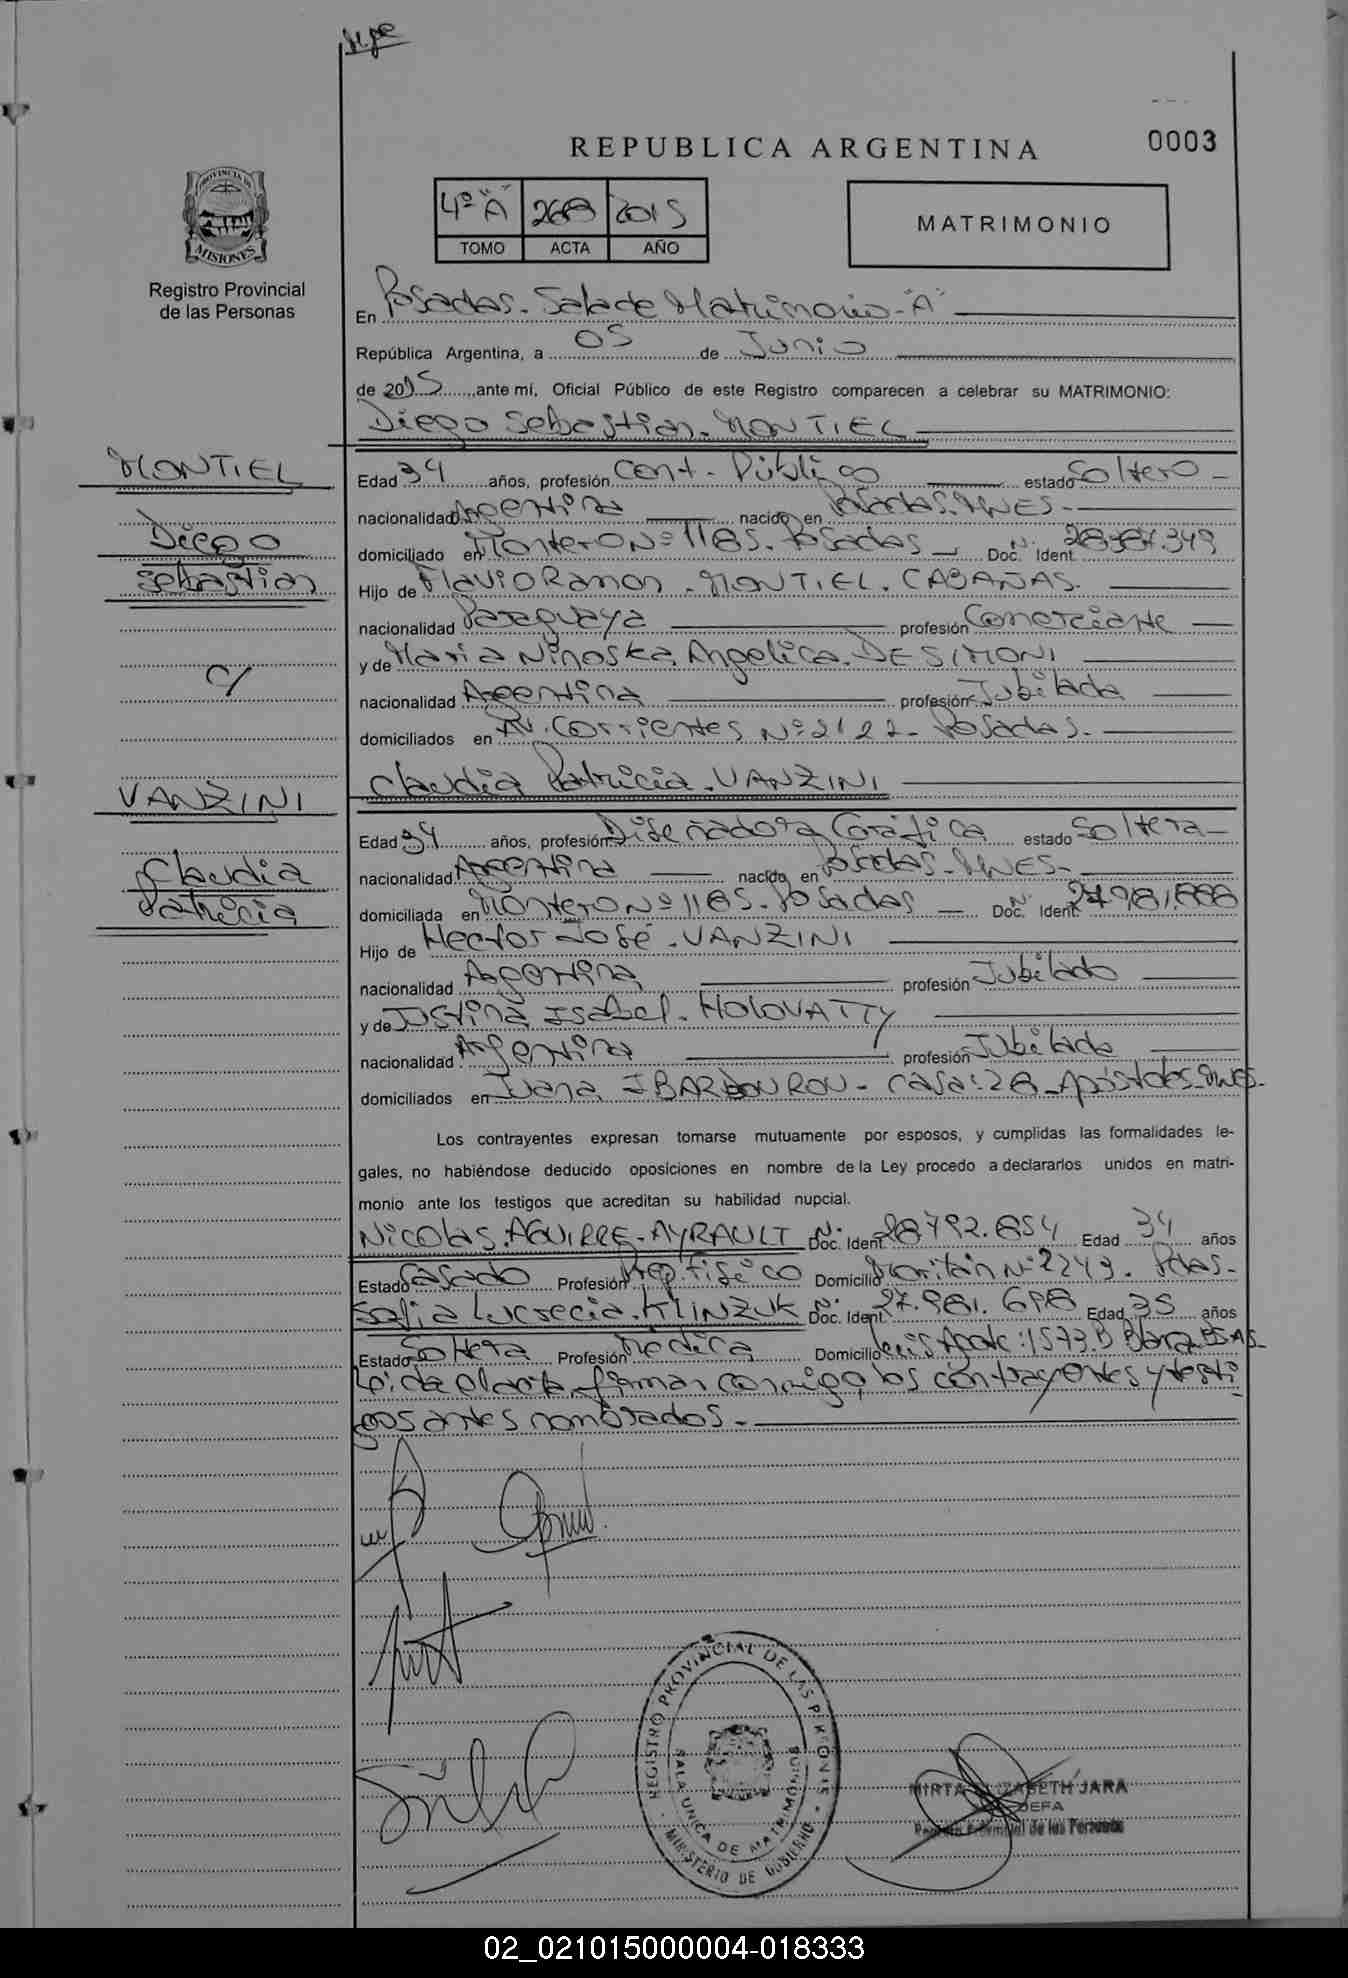 0003
REPUBLICA ARGENTINA
PROVINCIA DE
MISIONES
Registro Provincial
de las Personas
4º "A" 268 2015
TOMO ACTA AÑO
MATRIMONIO
En Posadas. Sala de Matrimonio "A"
República Argentina, a 05 de Junio
de 2015, ante mí, Oficial Público de este Registro comparecen a celebrar su MATRIMONIO:
Diego Sebastian. MONTIEL
MONTIEL
Diego
Sebastian
C/
VANZINI
Claudia
Patricia
Edad 34 años, profesión Cont. Público estado Soltero
nacionalidad Argentina nacido en Posadas. MNES.
domiciliado en Montero Nº 1185. Posadas Doc. Ident. Nº
Hijo de Flavio Ramon. MONTIEL. CABAÑAS.
nacionalidad Paraguaya profesión Comerciante
y de Maria Ninoska Angelica. DESIMONI
nacionalidad Argentina profesión Jubilada
domiciliados en Av. Corrientes Nº 2122. Posadas.
Claudia Patricia. VANZINI
Edad 34 años, profesión Diseñadora Gráfica estado Soltera
nacionalidad Argentina nacido en Posadas. MNES.
domiciliada en Montero Nº 1185. Posadas Doc. Ident. Nº
Hijo de Hector José. VANZINI
nacionalidad Argentina profesión Jubilado
y de Justina Isabel. HOLOVATTY
nacionalidad Argentina profesión Jubilada
domiciliados en Juana IBARBOUROU - Casa: 28 - Apóstoles. MNES.
Los contrayentes expresan tomarse mutuamente por esposos, y cumplidas las formalidades le-
gales, no habiéndose deducido oposiciones en nombre de la Ley procedo a declararlos unidos en matri-
monio ante los testigos que acreditan su habilidad nupcial.
Nicolas. AGUIRRE. AYRAULT Nº Doc. Ident. 28792.854 Edad 34 años
Estado Casado Profesión Prep. Físico Domicilio Nº 2249. Pdas.
Sofia Lucrecia. KLINZUK Nº Doc. Ident. 27.981.698 Edad 35 años
Estado Soltera Profesión Médica Domicilio 1573. B Blanca. BS AS.
Leída el acta, firman conmigo, los contrayentes y testi-
gos antes nombrados.
REGISTRO PROVINCIAL DE LAS PERSONAS
SALA UNICA DE MATRIMONIOS
MINISTERIO DE GOBIERNO
MIRTA ELIZABETH JARA
JEFA
Registro Provincial de las Personas
02_021015000004-018333